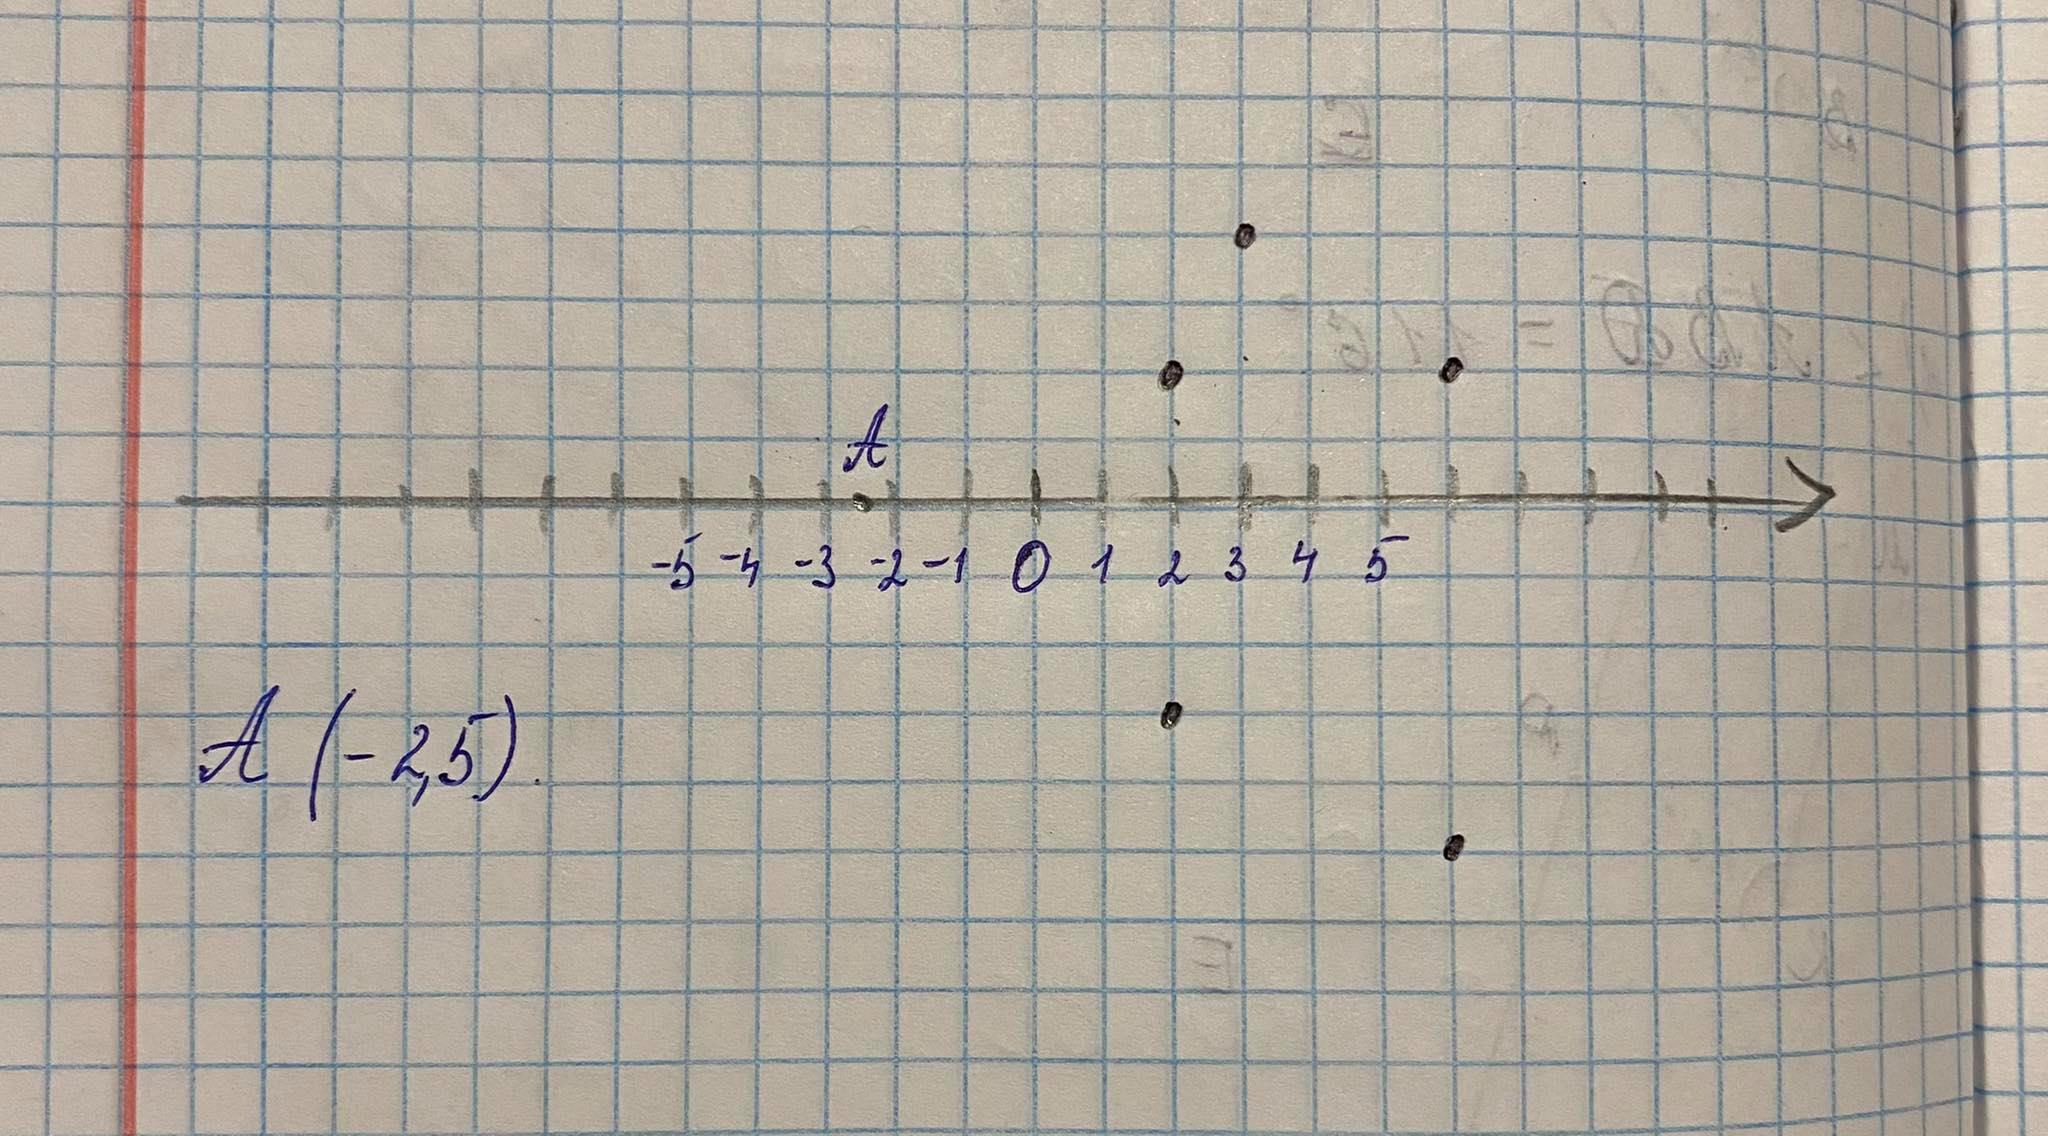 A
-5 -4 -3 -2 -1 0 1 2 3 4 5
A (-2,5).